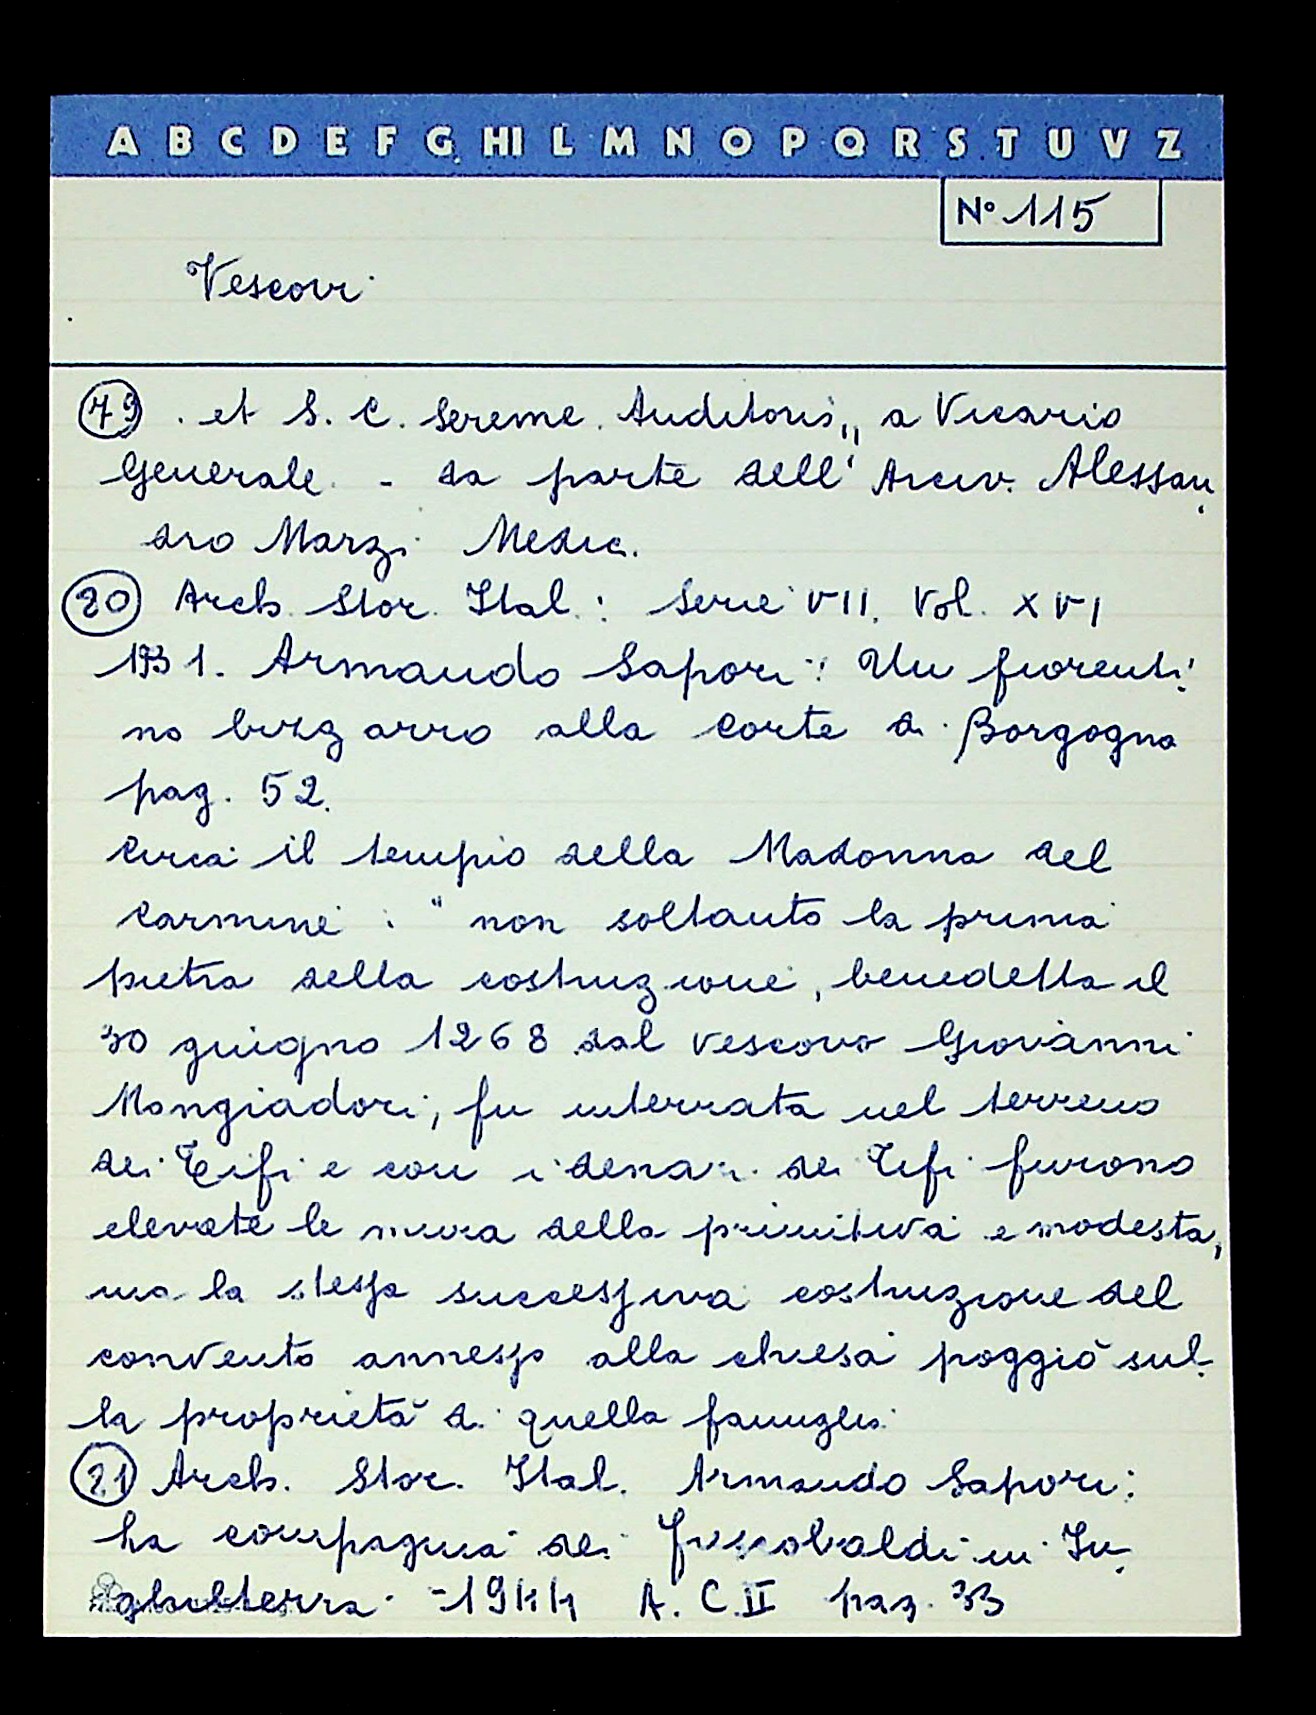 A B C D E F G HI L M N O P Q R S T U V Z
N° 115
Vescovi
79 . et S. C. Sereme. Auditoris,, a Vicario
Generale. - da parte dell' Arciv. Alessan
dro Marzi Medici.
20 Arch. Stor. Ital.: Serie VII. Vol. XVI
1931. Armando Sapori: Un fiorenti
no bizzarro alla corte di Borgogna
pag. 52.
Circa il tempio della Madonna del
Carmine : " non soltanto la prima
pietra della costruzione, benedetta il
30 giugno 1268 dal vescovo Giovanni
Mangiadori, fu interrata nel terreno
dei Tifi e con i denari dei Tifi furono
elevate le mura della primitiva e modesta,
ma la stessa successiva costruzione del
convento annesso alla chiesa poggiò sul-
la proprietà di quella famiglia
21 Arch. Stor. Ital. Armando Sapori:
La compagnia dei Frescobaldi in In
ghilterra - 1944 A. C. II pag. 33